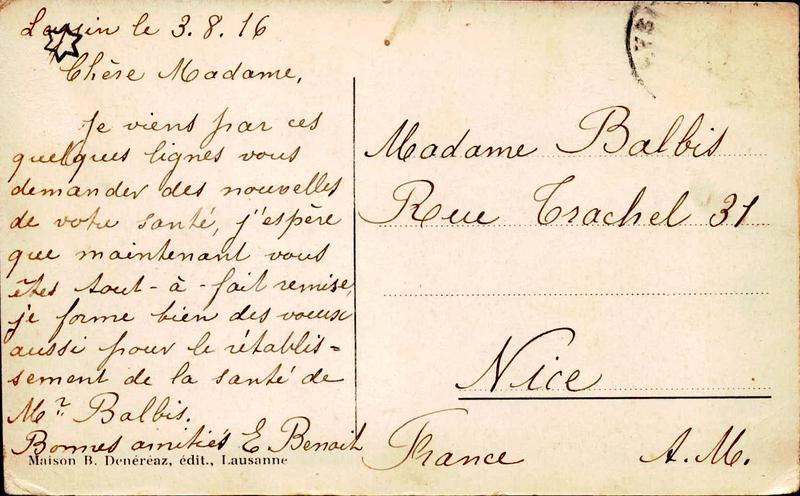 Leysin le 3.8.16
Chère Madame,
Je viens par ces
quelques lignes vous
demander des nouvelles
de votre santé, j'espère
que maintenant vous
êtes tout-à-fait remise,
je forme bien des voeux
aussi pour le rétablis=
sement de la santé de
Mr Balbis.
Bonnes amitiés E Benoit
Maison B. Denéréaz, édit., Lausanne
Madame Balbis
Rue Trachel 31
Nice
France A.M.